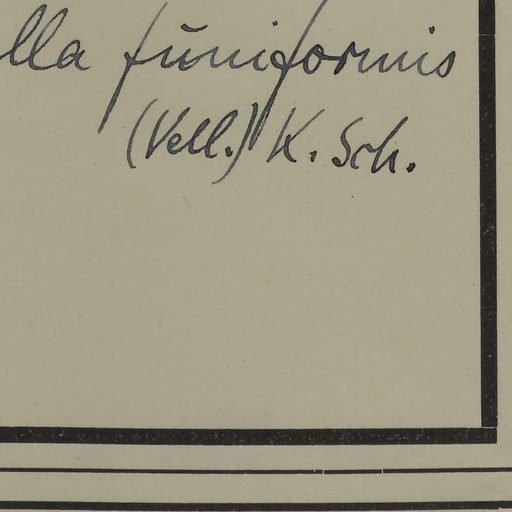 lla funiformis
(Vell.) K. Sch.